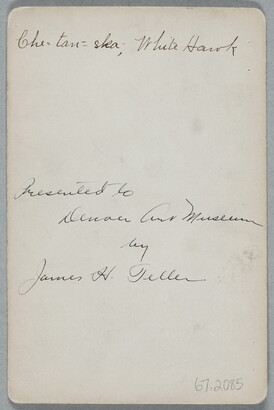 Che-tan-ska, White Hawk
Presented to
Denver Art Museum
by
James H. Teller
67.2085